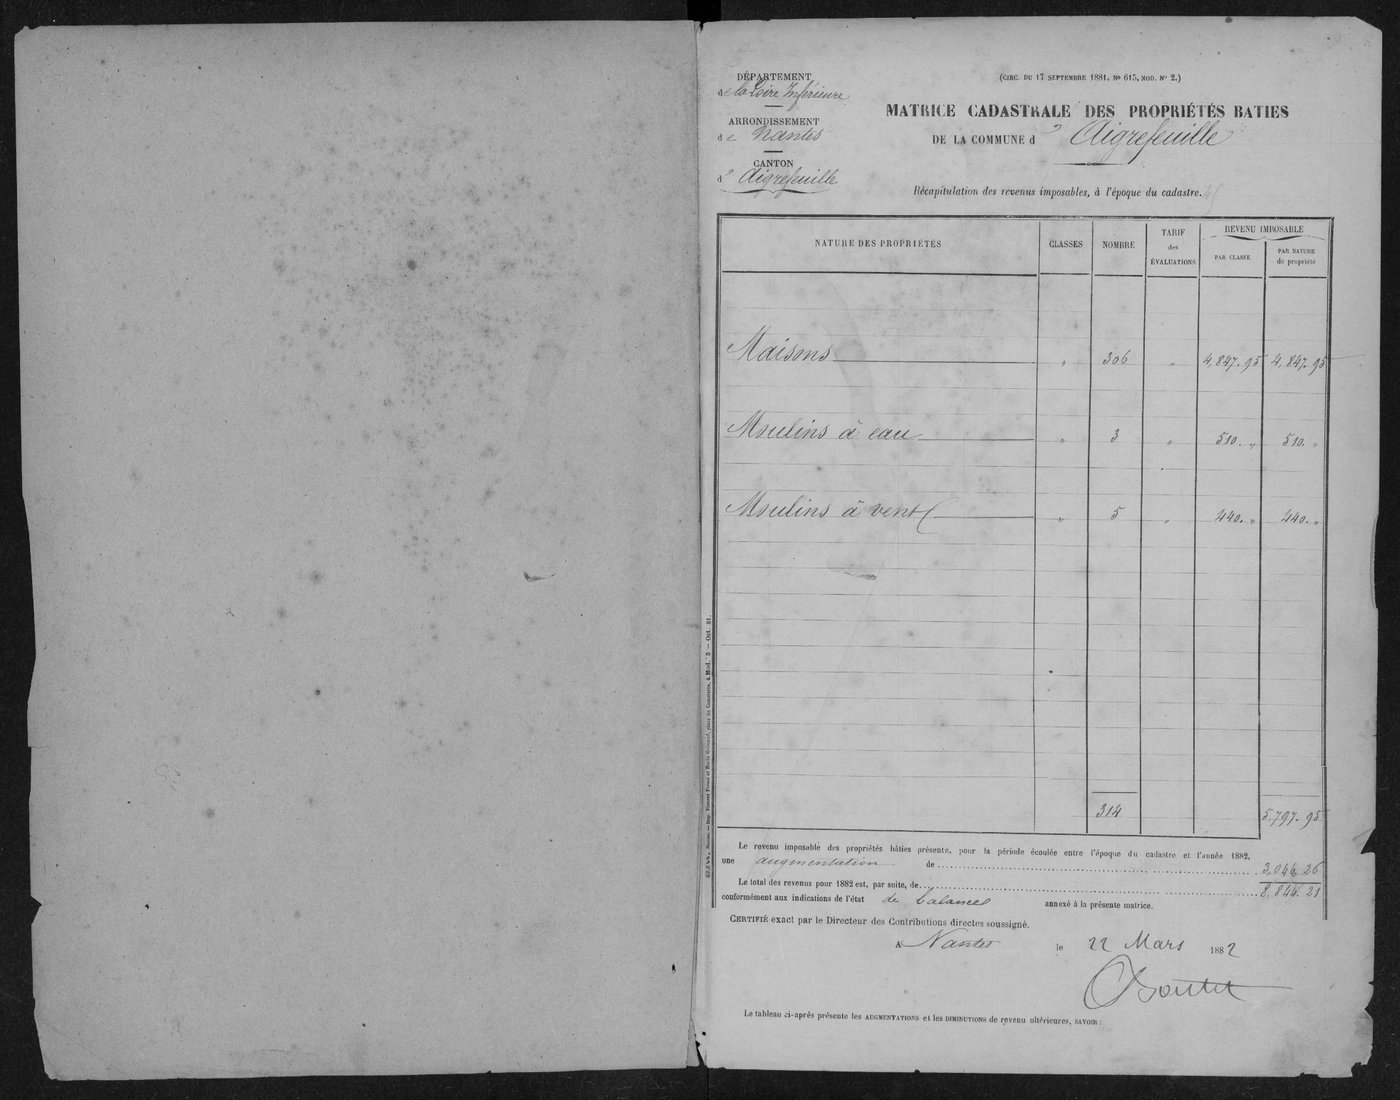 DÉPARTEMENT
de la Loire Inférieure
ARRONDISSEMENT
de Nantes
CANTON
d' Aigrefeuille
(CIRC. DU 17 SEPTEMBRE 1881, No 615, MOD. No 2.)
MATRICE CADASTRALE DES PROPRIÉTÉS BATIES
DE LA COMMUNE d' Aigrefeuille
Récapitulation des revenus imposables, à l'époque du cadastre.
NATURE DES PROPRIÉTÉS CLASSES NOMBRE TARIF des ÉVALUATIONS REVENU IMPOSABLE
PAR CLASSE PAR NATURE de propriété
Maisons " 306 " 4,847.95 4,847.95
Moulins à eau " 3 " 510. " 510. "
Moulins à vent " 5 " 440. " 440. "
314 5,797.95
Le revenu imposable des propriétés bâties présente, pour la période écoulée entre l'époque du cadastre et l'année 1882,
une augmentation de 3,046.26
Le total des revenus pour 1882 est, par suite, de 8,844.21
conformément aux indications de l'état de balance annexé à la présente matrice.
CERTIFIÉ exact par le Directeur des Contributions directes soussigné.
A Nantes le 22 Mars 1882
Le tableau ci-après présente les AUGMENTATIONS et les DIMINUTIONS de revenu ultérieures, SAVOIR :
Nantes. — Imp. Vincent Forest et Émile Grimaud, place du Commerce, 4. Mod. 5 — Oct. 81.